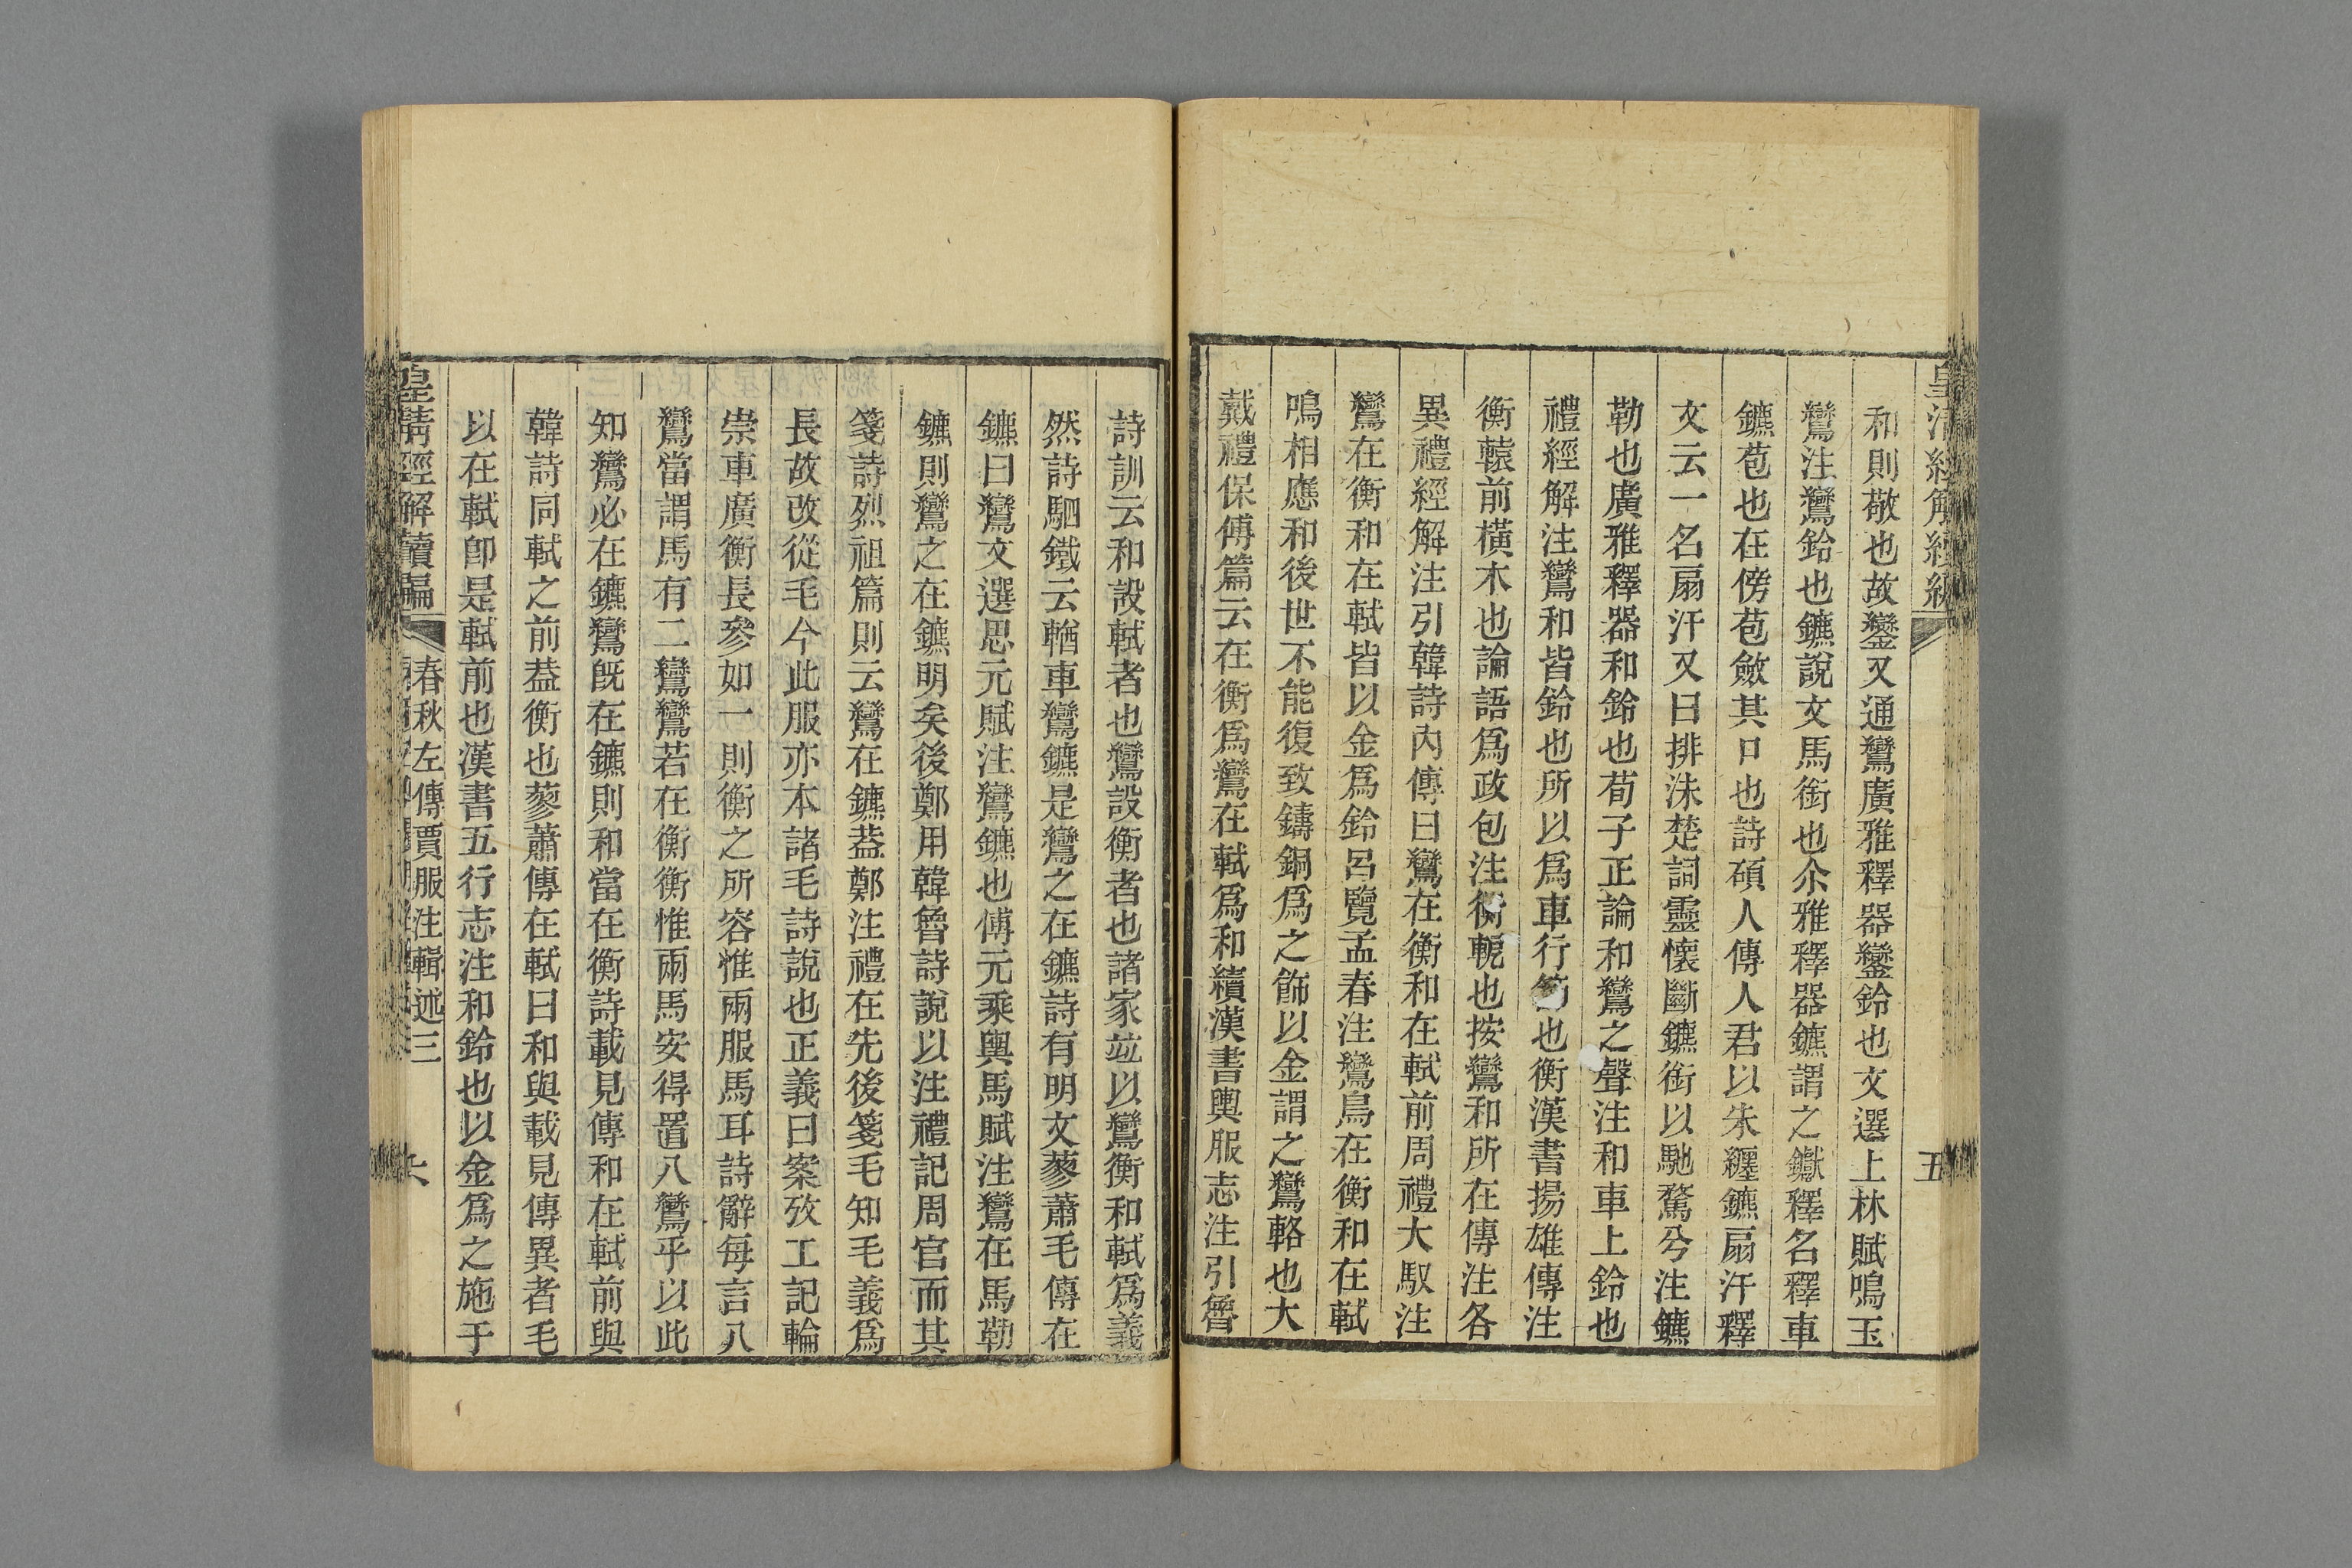 皇清經解續編
五
和則敬也故鑾又通鸞廣雅釋器鑾鈴也文選上林賦鳴玉
鸞注鸞鈴也鑣說文馬銜也尒雅釋器鑣謂之钀釋名釋車
鑣苞也在傍苞斂其口也詩碩人傳人君以朱纒鑣扇汗釋
文云一名扇汗又曰排沫楚詞靈懷斷鑣銜以馳騖兮注鑣
勒也廣雅釋器和鈴也荀子正論和鸞之聲注和車上鈴也
禮經解注鸞和皆鈴也所以爲車行節也衡漢書揚雄傳注
衡轅前橫木也論語爲政包注衡軛也按鸞和所在傳注各
異禮經解注引韓詩內傳曰鸞在衡和在軾前周禮大馭注
鸞在衡和在軾皆以金爲鈴呂覽孟春注鸞鳥在衡和在軾
鳴相應和後世不能復致鑄銅爲之飾以金謂之鸞輅也大
戴禮保傅篇云在衡爲鸞在軾爲和續漢書輿服志注引魯
詩訓云和設軾者也鸞設衡者也諸家竝以鸞衡和軾爲義
然詩駟鐵云輶車鸞鑣是鸞之在鑣詩有明文蓼蕭毛傳在
鑣曰鸞文選思元賦注鸞鑣也傅元乘輿馬賦注鸞在馬勒
鑣則鸞之在鑣明矣後鄭用韓魯詩說以注禮記周官而其
箋詩烈祖篇則云鸞在鑣葢鄭注禮在先後箋毛知毛義爲
長故改從毛今此服亦本諸毛詩說也正義曰案攷工記輪
崇車廣衡長參如一則衡之所容惟兩服馬耳詩辭每言八
鸞當謂馬有二鸞鸞若在衡衡惟兩馬安得置八鸞乎以此
知鸞必在鑣鸞旣在鑣則和當在衡詩載見傳和在軾前與
韓詩同軾之前葢衡也蓼蕭傳在軾曰和與載見傳異者毛
以在軾卽是軾前也漢書五行志注和鈴也以金爲之施于
皇清經解續編
春秋左傳賈服注輯述三
六